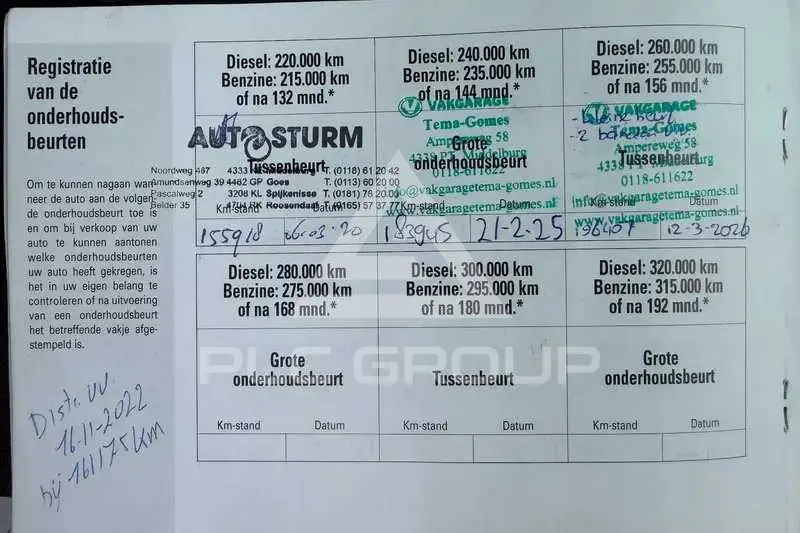 Registratie
van de
onderhouds-
beurten
Om te kunnen nagaan wan-
neer de auto aan de volgen-
de onderhoudsbeurt toe is
en om bij verkoop van uw
auto te kunnen aantonen
welke onderhoudsbeurten
uw auto heeft gekregen, is
het in uw eigen belang te
controleren of na uitvoering
van een onderhoudsbeurt
het betreffende vakje afge-
stempeld is.
Distr. vv.
16-11-2022
bij 161175 km
Diesel: 220.000 km
Benzine: 215.000 km
of na 132 mnd.*
AUTOSTURM
Tussenbeurt
Noordweg 467 4333 Middelburg T. (0118) 61 20 42
Amundsenweg 39 4462 GP Goes T. (0113) 60 20 00
Pascalweg 2 3208 KL Spijkenisse T. (0181) 76 20 00
Belder 35 4704 RK Roosendaal T. (0165) 57 37 77
Km-stand Datum
155918 06-03-20
Diesel: 240.000 km
Benzine: 235.000 km
of na 144 mnd.*
VAKGARAGE
Tema-Gomes
Ampereweg 58
Grote
4338 PT Middelburg
onderhoudsbeurt
0118-611622
info@vakgaragetema-gomes.nl
www.vakgaragetema-gomes.nl
Km-stand Datum
183945 21-2-25
Diesel: 260.000 km
Benzine: 255.000 km
of na 156 mnd.*
VAKGARAGE
Tema-Gomes
Ampereweg 58
Tussenbeurt
Middelburg
0118-611622
info@vakgaragetema-gomes.nl
www.vakgaragetema-gomes.nl
Km-stand Datum
196407 12-3-2026
Diesel: 280.000 km
Benzine: 275.000 km
of na 168 mnd.*
Grote
onderhoudsbeurt
Km-stand Datum
Diesel: 300.000 km
Benzine: 295.000 km
of na 180 mnd.*
Tussenbeurt
Km-stand Datum
Diesel: 320.000 km
Benzine: 315.000 km
of na 192 mnd.*
Grote
onderhoudsbeurt
Km-stand Datum
PLC GROUP